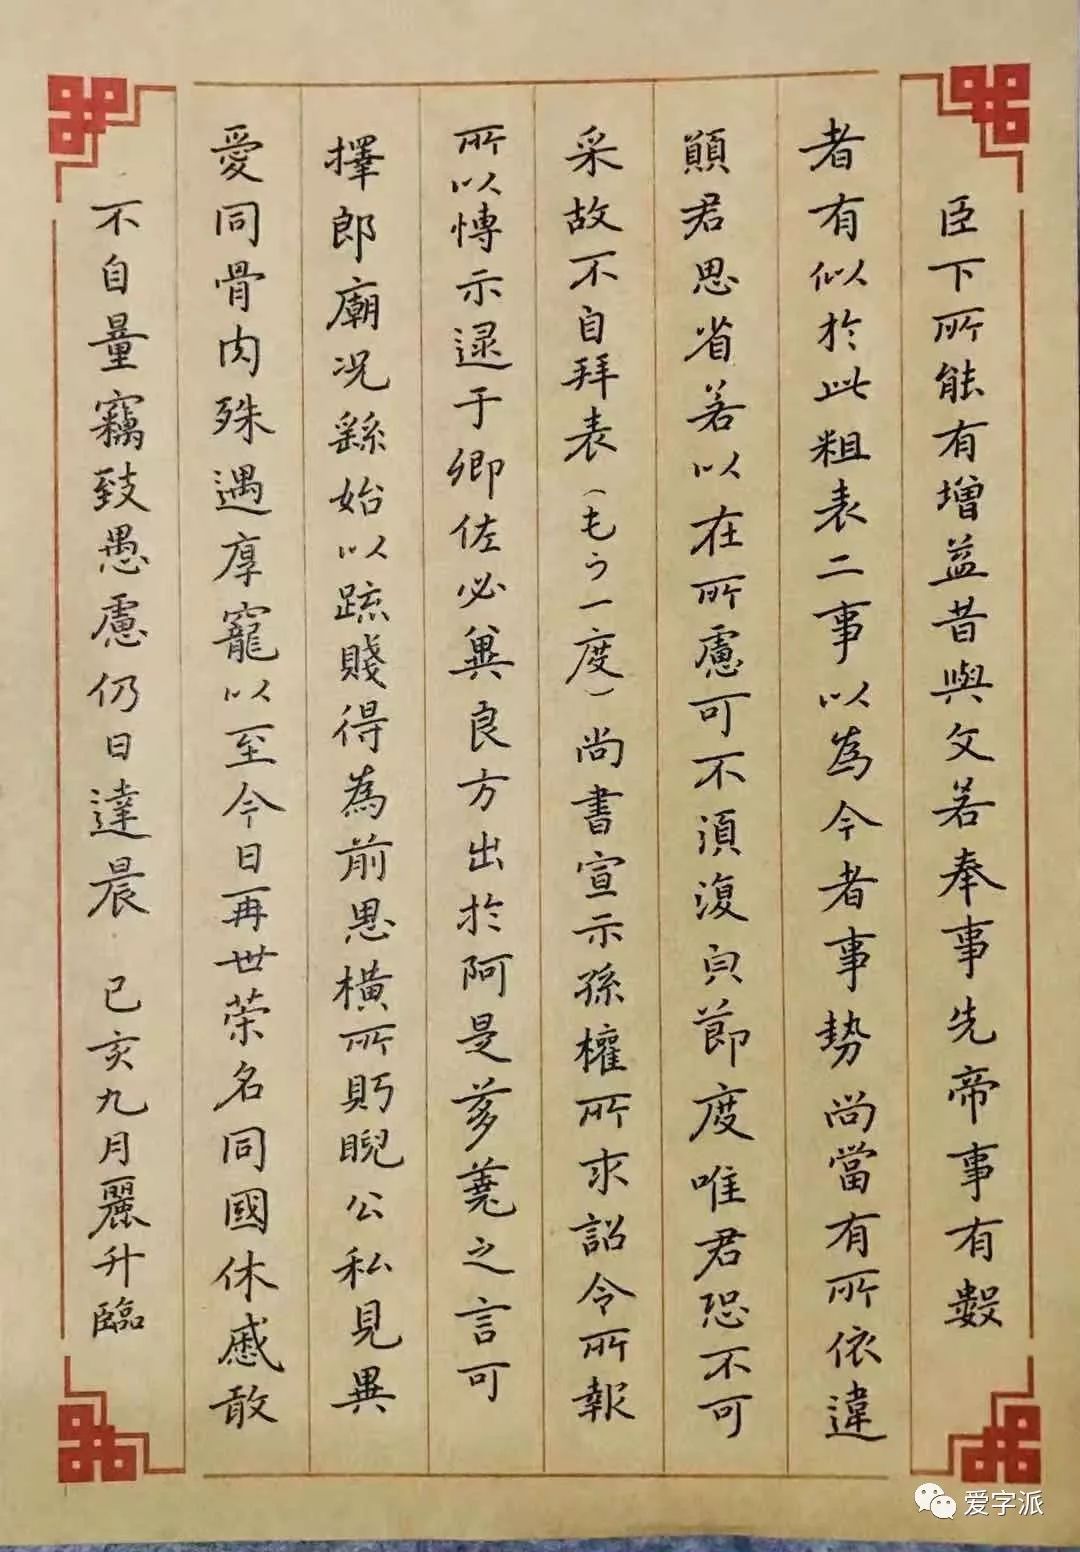 臣下所能有增益昔與文若奉事先帝事有數
者有似於此粗表二事以為今者事勢尚當有所依違
願君思省若以在所慮可不須復貟節度唯君恐不可
采故不自拜表(乇う一度)尚書宣示孫權所求詔令所報
所以愽示逯于卿佐必兾良方出於阿是芻蕘之言可
擇郎廟況繇始以疏賤得為前恩橫所眄睨公私見異
愛同骨肉殊遇厚寵以至今日再世荣名同國休慼敢
不自量竊致愚慮仍日達晨 已亥九月麗升臨
爱字派